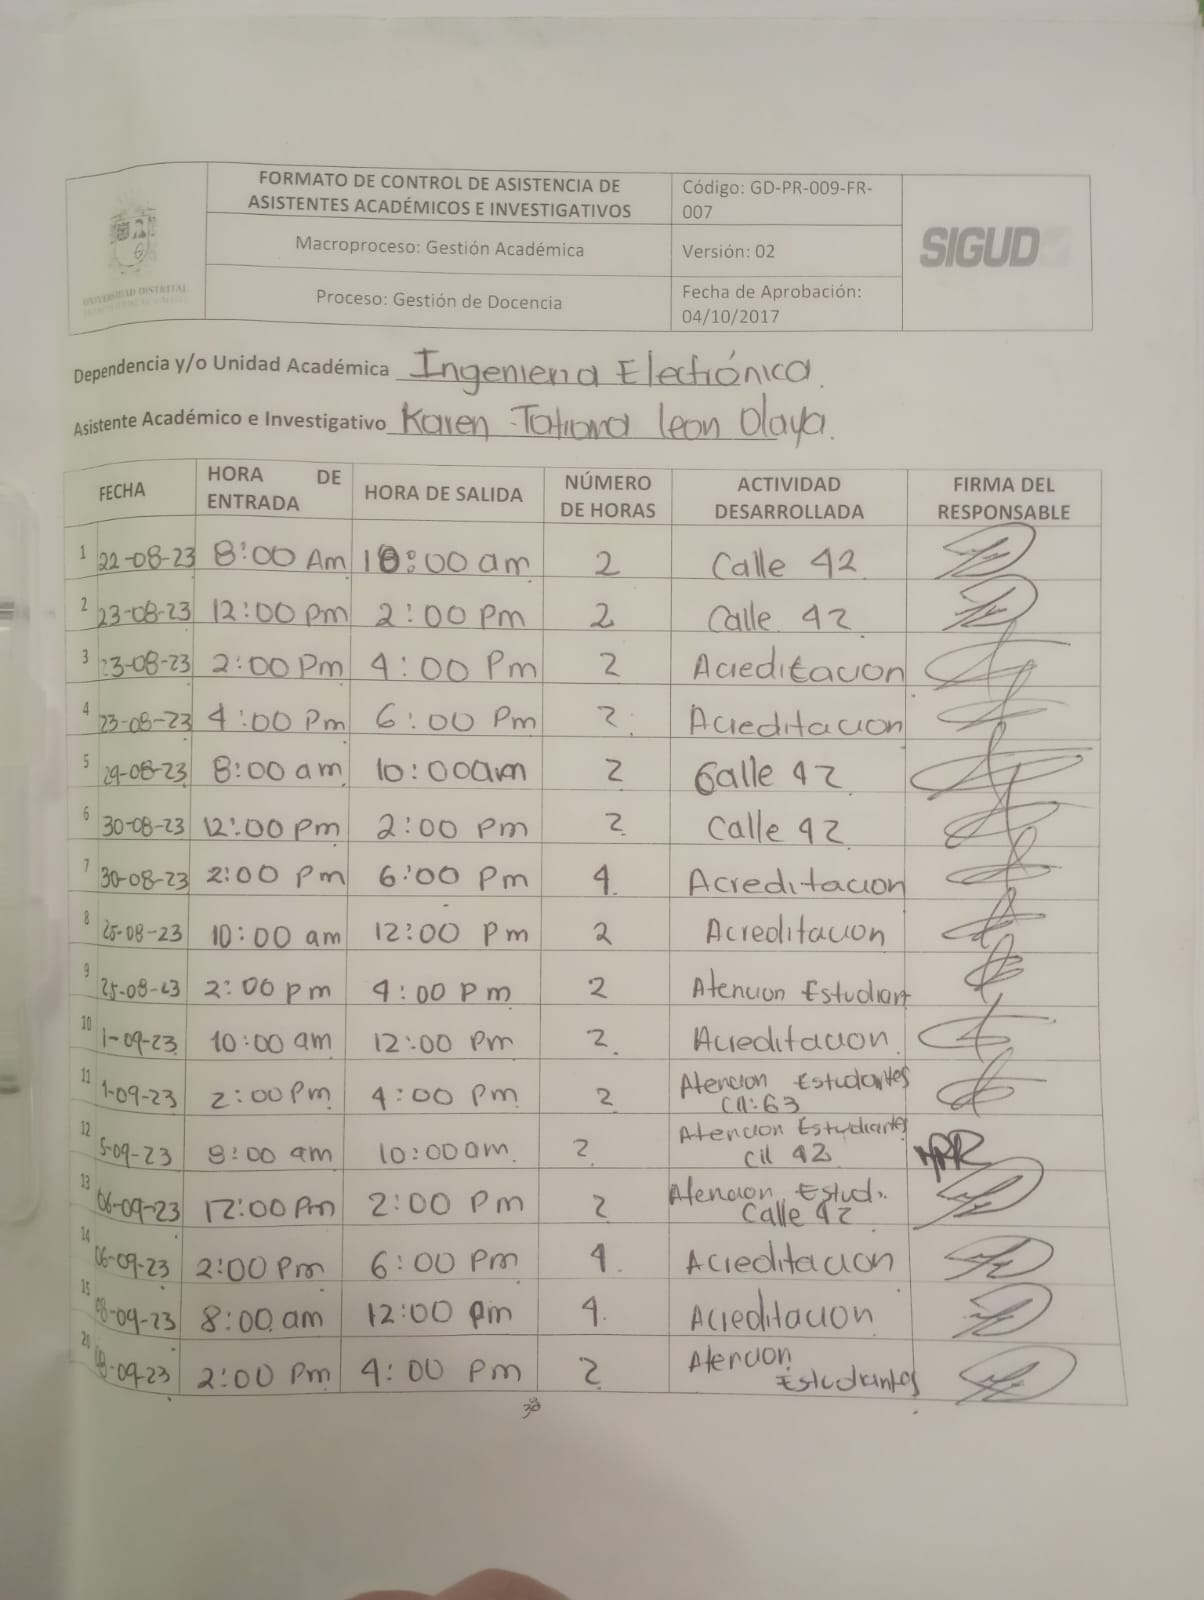 FORMATO DE CONTROL DE ASISTENCIA DE
ASISTENTES ACADÉMICOS E INVESTIGATIVOS
Código: GD-PR-009-FR-
007
Macroproceso: Gestión Académica
Versión: 02
Proceso: Gestión de Docencia
Fecha de Aprobación:
04/10/2017
UNIVERSIDAD DISTRITAL
SIGUD
Dependencia y/o Unidad Académica Ingenieria Electrónica.
Asistente Académico e Investigativo Karen Tatiana Leon Olaya.
FECHA HORA DE ENTRADA HORA DE SALIDA NÚMERO DE HORAS ACTIVIDAD DESARROLLADA FIRMA DEL RESPONSABLE
1 22-08-23 8:00 Am 10:00 am 2 Calle 42
2 23-08-23 12:00 pm 2:00 Pm 2 Calle 42
3 23-08-23 2:00 Pm 4:00 Pm 2 Acreditacion
4 23-08-23 4:00 Pm 6:00 Pm 2 Acreditacion
5 29-08-23 8:00 am 10:00am 2 Calle 42
6 30-08-23 12:00 pm 2:00 Pm 2 Calle 42
7 30-08-23 2:00 Pm 6:00 Pm 4. Acreditacion
8 25-08-23 10:00 am 12:00 Pm 2 Acreditacion
9 25-08-23 2:00 pm 4:00 Pm 2 Atencion Estudiant
10 1-09-23 10:00 am 12:00 Pm 2. Acreditacion.
11 1-09-23 2:00 Pm 4:00 Pm 2 Atencion Estudiantes
Cll:63
12 5-09-23 8:00 am 10:00am. 2. Atencion Estudiantes
Cll 42
13 06-09-23 12:00 Pm 2:00 Pm 2 Atencion Estud.
Calle 42
14 06-09-23 2:00 Pm 6:00 Pm 4. Acreditacion
15 08-09-23 8:00 am 12:00 pm 4. Acreditacion
20 08-09-23 2:00 Pm 4:00 Pm 2 Atencion
Estudiantes
38